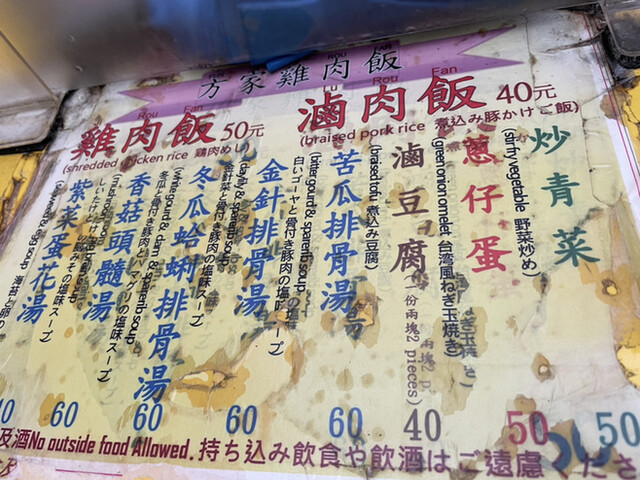 方家雞肉飯
Rou Fan
雞肉飯 50元
(shredded chicken rice 鶏肉めし)
Lu Rou Fan
滷肉飯 40元
(braised pork rice 煮込み豚かけご飯)
炒青菜
(stir fry vegetable 野菜炒め)
50
蔥仔蛋
(green onion omelet 台湾風ねぎ玉焼き)
50
滷豆腐
(braised tofu 煮込み豆腐)
份兩塊2 pieces)
40
苦瓜排骨湯
(bitter gourd & sparerib soup
白いゴーヤと骨付き豚肉の塩味スープ)
60
金針排骨湯
(daylily & sparerib soup
金針菜と骨付き豚肉の塩味スープ)
60
冬瓜蛤蜊排骨湯
60
香菇頭髓湯
60
紫菜蛋花湯
40
及酒No outside food Allowed. 持ち込み飲食や飲酒はご遠慮くださ